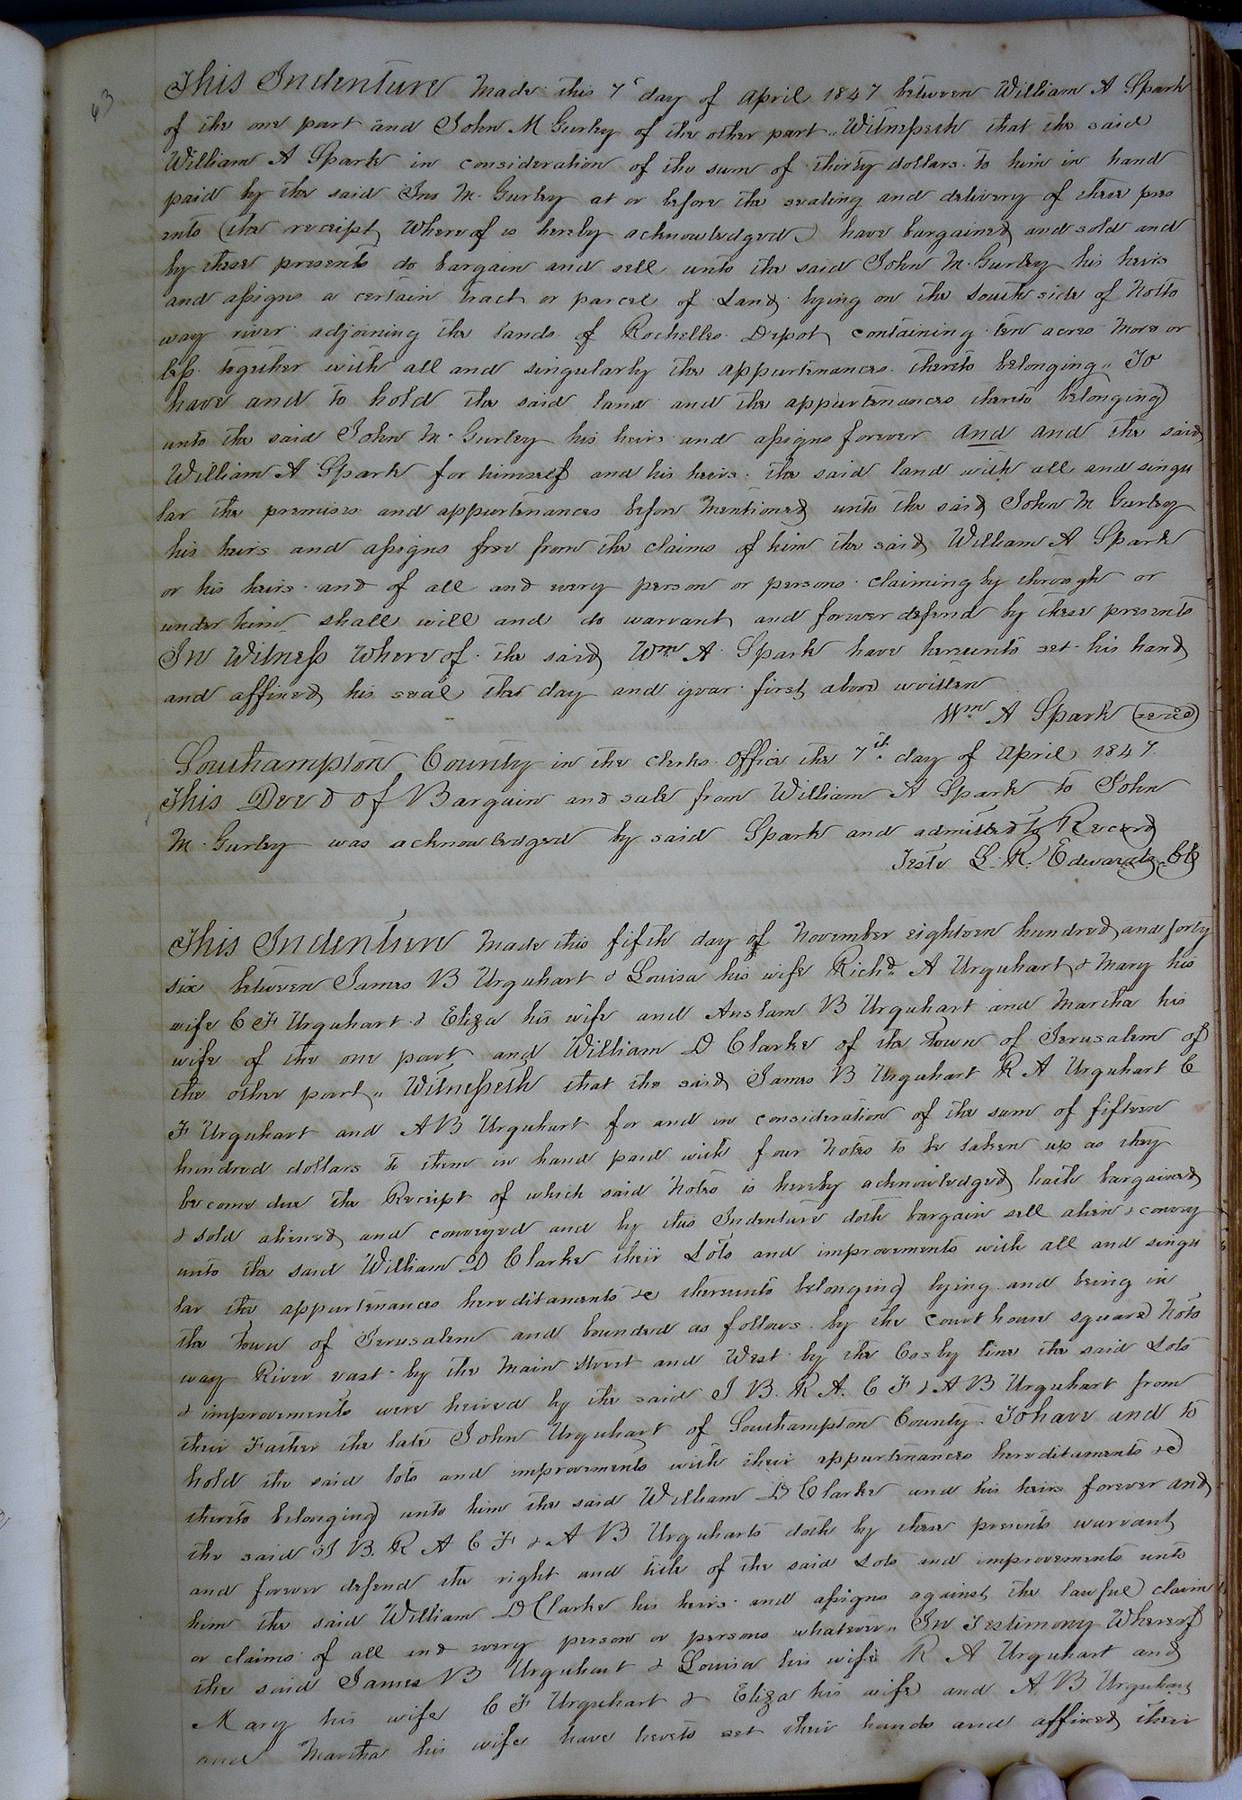 63
This Indenture Made this 7th day of April 1847 between William A Spark
of the one part and John M Gurley of the other part, Witnesseth that the said
William A Spark in consideration of the sum of thirty dollars to him in hand
paid by the said Jno M. Gurley at or before the sealing and delivery of these pres
ents (the receipt whereof is hereby acknowledged) have bargained and sold and
by these presents do bargain and sell unto the said John M. Gurley his heirs
and assigns a certain tract or parcel of Land lying on the South side of Notto
way river adjoining the lands of Rochelles Depot containing ten acres more or
less together with all and singularly the appurtenances thereto belonging, To
have and to hold the said land and the appurtenances thereto belonging
unto the said John M. Gurley his heirs and assigns forever and and the said
William A Spark for himself and his heirs the said land with all and singu
lar the premises and appurtenances before mentioned unto the said John M Gurley
his heirs and assigns free from the claims of him the said William A Spark
or his heirs and of all and every person or persons claiming by through or
under him shall will and do warrant and forever defend by these presents
In Witness Whereof the said Wm A Spark have hereunto set his hand
and affixed his seal the day and year first above written
Wm A Spark (seal)
Southampton County in the clerks Office the 7th day of April 1847
This Deed of Bargain and sale from William A Spark to John
M. Gurley was acknowledged by said Spark and admitted to Record
Teste L. R. Edwards CC
This Indenture Made this fifth day of November eighteen hundred and forty
six between James B Urquhart & Louisa his wife Richd A Urquhart & Mary his
wife C F Urquhart & Eliza his wife and Anslam B Urquhart and Martha his
wife of the one part and William D Clarke of the Town of Jerusalem of
the other part, Witnesseth that the said James B Urquhart R A Urquhart C
F Urquhart and A B Urquhart for and in consideration of the sum of fifteen
hundred dollars to them in hand paid with four Notes to be taken up as they
become due the Receipt of which said Notes is hereby acknowledged hath bargained
& sold aliened and conveyed and by this Indenture doth bargain sell alien & convey
unto the said William D Clarke their Lots and improvements with all and singu
lar the appurtenances hereditaments &c thereunto belonging lying and being in
the town of Jerusalem and bounded as follows by the court house square Noto
way River east by the Main street and West by the Cosby line the said Lots
& improvements were heired by the said J B. R A. C F & A B Urquhart from
their Father the late John Urquhart of Southampton County. To have and to
hold the said lots and improvements with their appurtenances hereditaments &c
thereto belonging unto him the said William D Clarke and his heirs forever and
the said J B. R A C F & A B Urquharts doth by these presents warrant
and forever defend the right and title of the said Lots and improvements unto
him the said William D Clarke his heirs and assigns against the lawful claim
or claims of all and every person or persons whatever, In Testimony Whereof
the said James B Urquhart & Louisa his wife R A Urquhart and
Mary his wife C F Urquhart & Eliza his wife and A. B Urquhart
and Martha his wife have hereto set their hands and affixed their